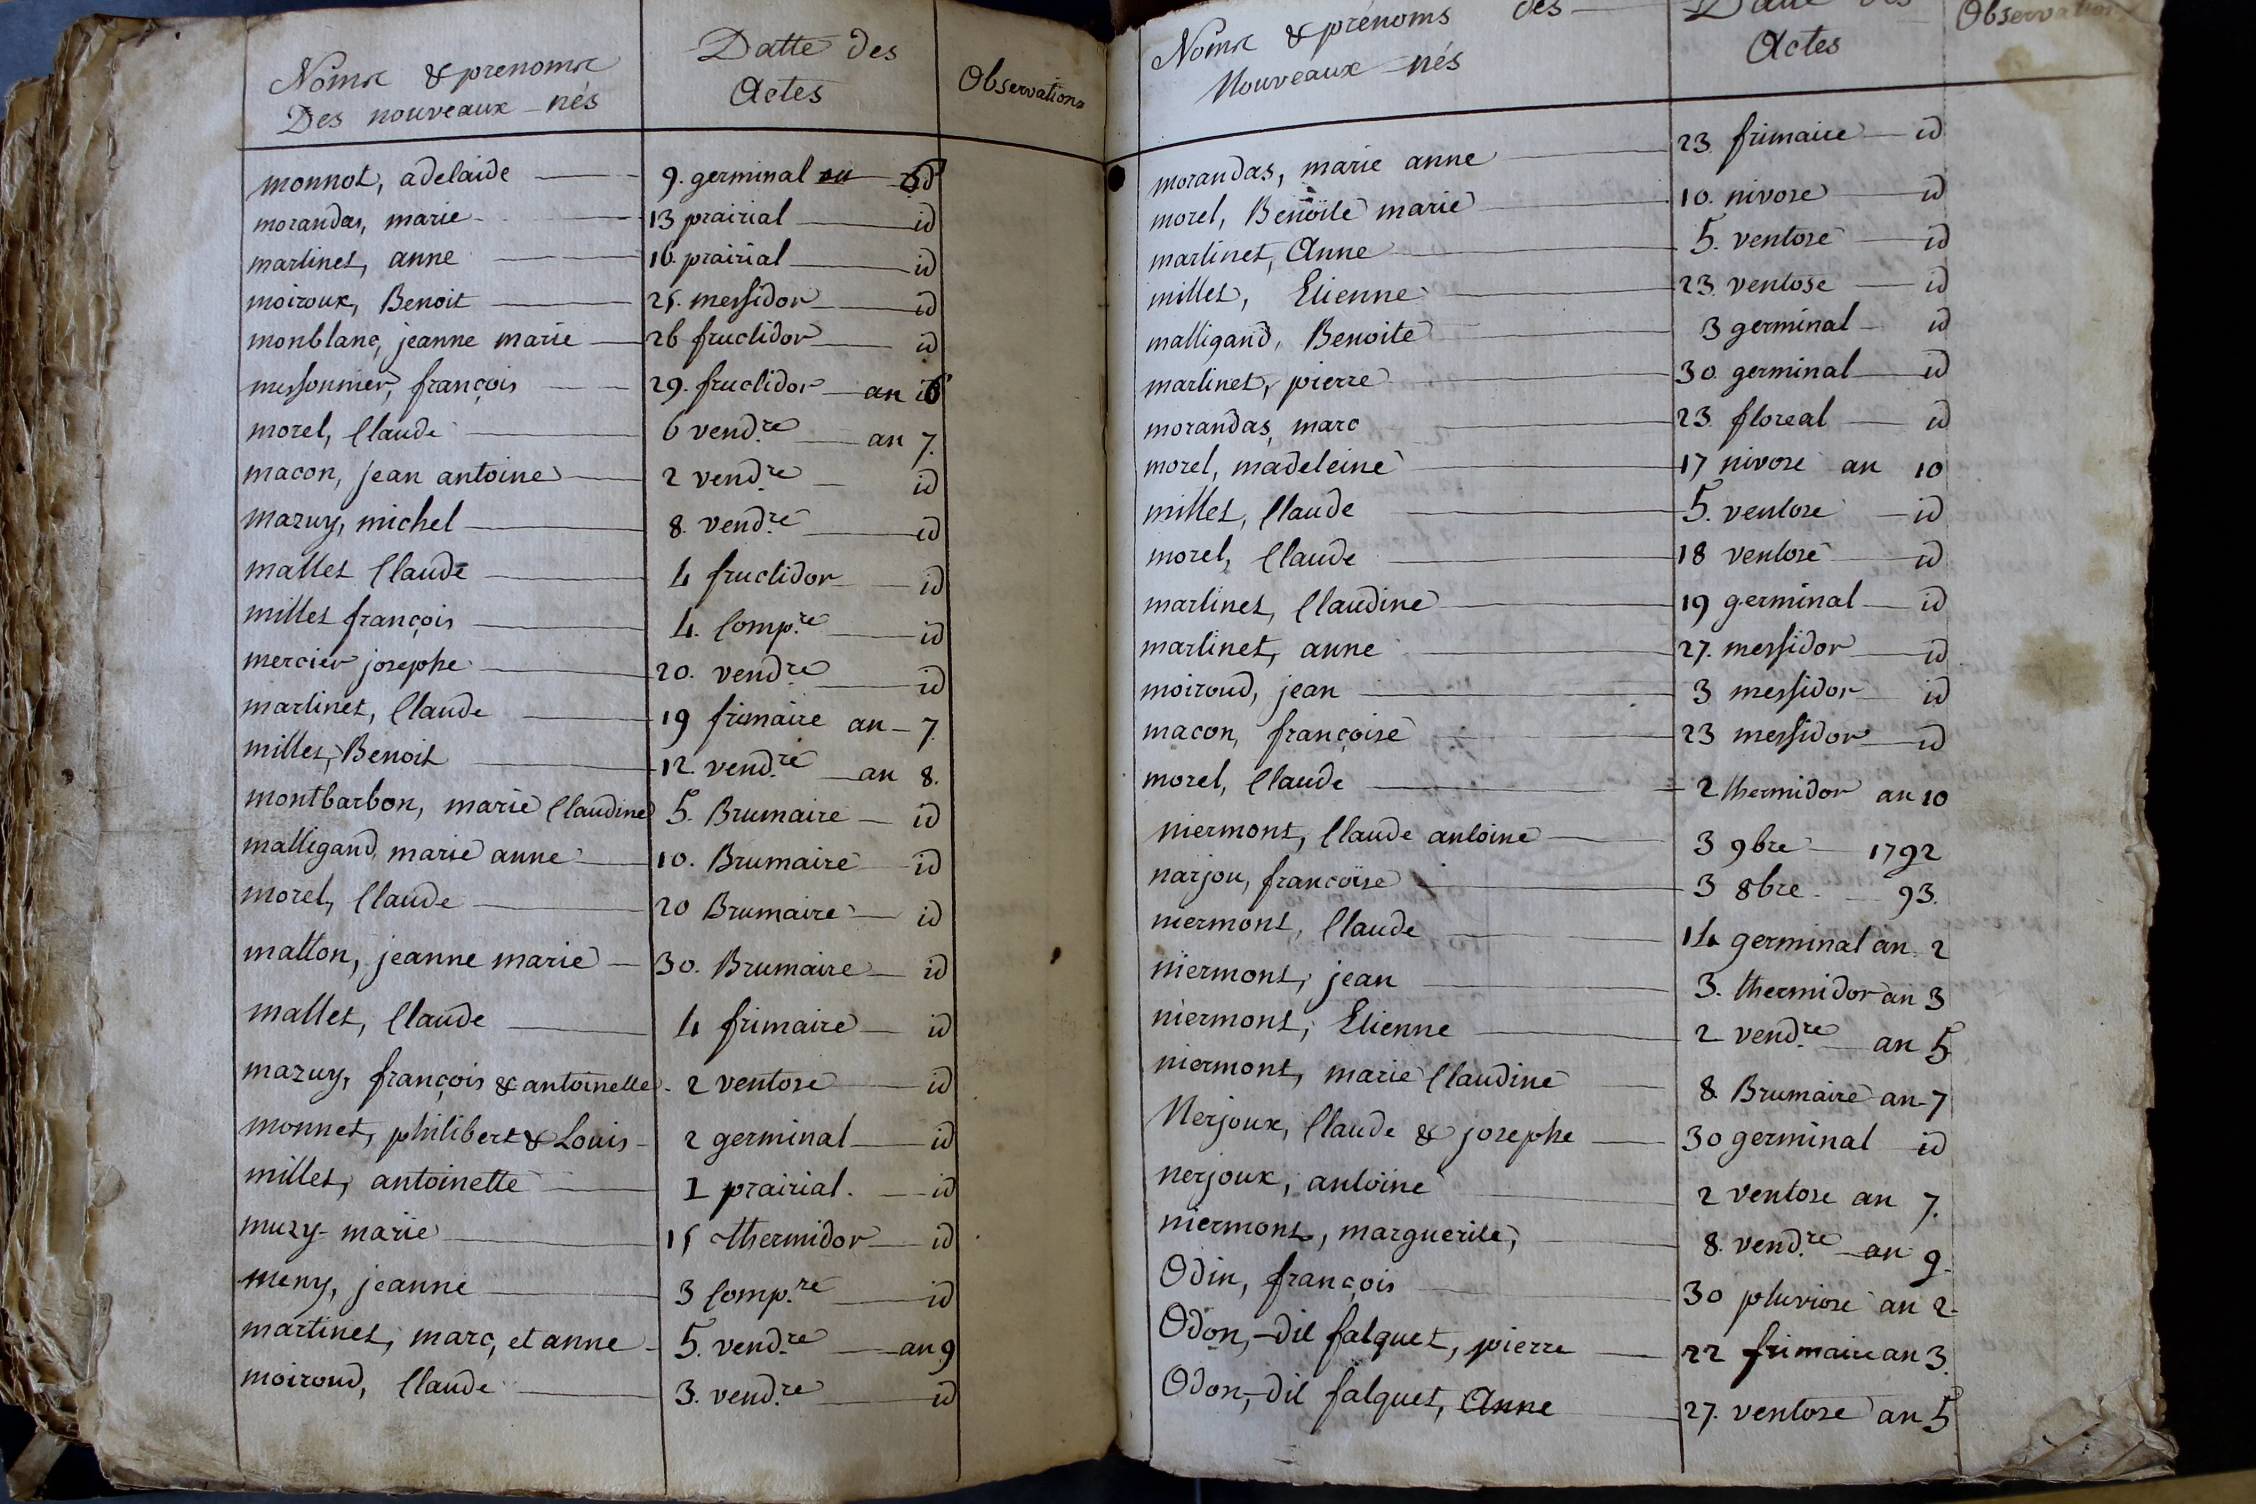 Noms & prenoms
Des nouveaux-nés
Datte des
Actes
Observations
monnot, adelaide 9. germinal
morandas, marie 13 prairial id
martinet, anne 16. prairial id
moiroux, Benoit 25. messidor id
monblanc, jeanne marie 26 fructidor id
messonnier, françois 29. fructidor an 6
morel, Claude 6 vend.re an 7.
macon, jean antoine 2 vend.re id
mazuy, michel 8. vend.re id
mallet Claude 4 fructidor id
millet françois 4. Comp.re id
mercier josephe 20. vend.re id
martinet, Claude 19 frimaire an 7
millet, Benoit 12. vend.re an 8.
montbarbon, marie Claudine 5. Brumaire id
malligand, marie anne 10. Brumaire id
morel, Claude 20 Brumaire id
matton, jeanne marie 30. Brumaire id
mallet, Claude 4 frimaire id
mazuy, françois & antoinette 2 ventose id
monnet, philibert & Louis 2 germinal id
millet, antoinette 1 prairial. id
muzy marie 15 thermidor id
meny, jeanne 3 Comp.re id
martinet, marc, et anne 5. vend.re an 9
moiroud, Claude 3. vend.re id
Noms & prénoms des
Nouveaux-nés
Datte des
Actes
Observations
morandas, marie anne 23. frimaire id
morel, Benoite marie 10. nivose id
martinet, Anne 5. ventose id
millet, Etienne 23 ventose id
malligand, Benoite 3 germinal id
martinet, pierre 30 germinal id
morandas, marc 23. floreal id
morel, madeleine 17 nivose an 10
millet, Claude 5. ventose id
morel, Claude 18 ventose id
martinet, Claudine 19 germinal id
martinet, anne 27. messidor id
moiroud, jean 3 messidor id
macon, françoise 23 messidor id
morel, Claude 2 thermidor an 10
niermont, Claude antoine 3 9bre 1792
narjou, francoise 3 8bre 93.
niermont, Claude 14 germinal an 2
niermont, jean 3. thermidor an 3
niermont, Etienne 2 vend.re an 5
niermont, marie Claudine 8. Brumaire an 7
Nerjoux, Claude & josephe 30 germinal id
nerjoux, antoine 2 ventose an 7.
niermont, marguerite, 8. vend.re an 9
Odin, françois 30 pluviose an 2
Odon, dit falquet, pierre 22 frimaire an 3
Odon, dit falquet, Anne 27. ventose an 5